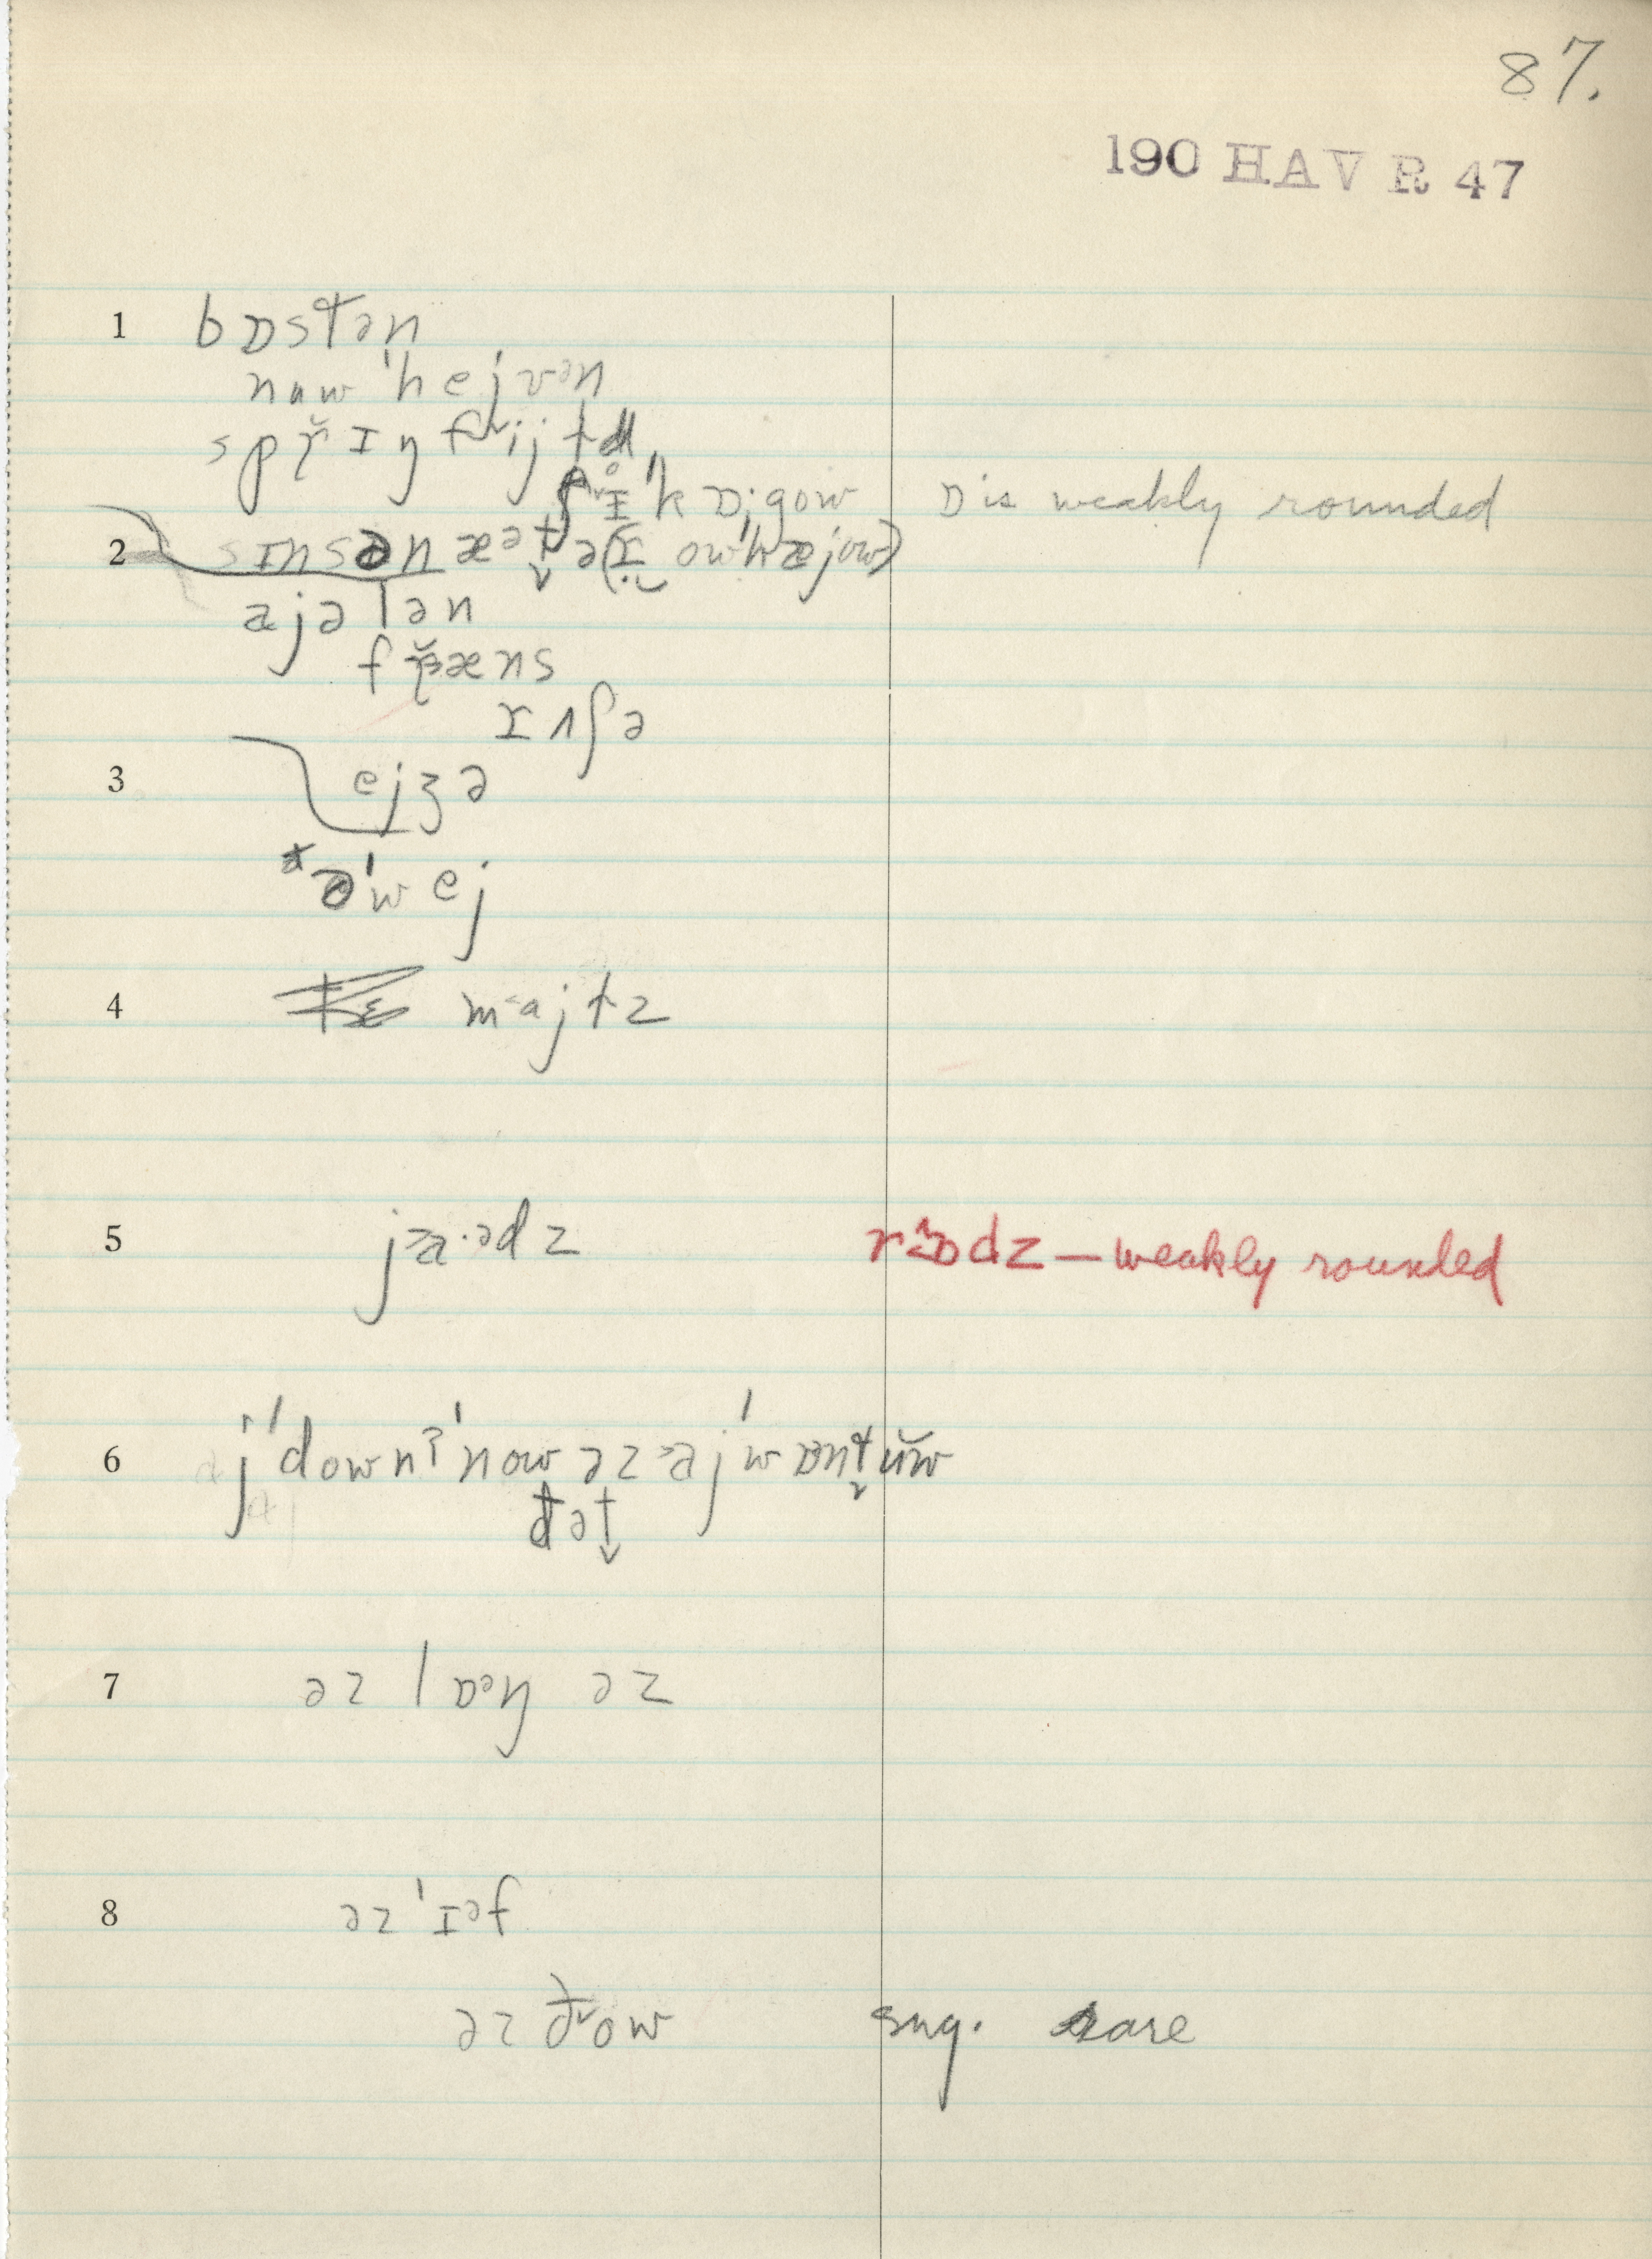 87.
190 HAV R 47
1 bɒstən
nuw ˈhejvən
sprɪŋfijɫd
ʃɪˈkɒːgow ɒ is weakly rounded
2 sɪnsənæət̬ə (ɪ owˈhæjow)
ajələn
fræns
ɪʌʃə
3 ejʒə
əˈwej
4 majts
5 ja·ədz rɒdz — weakly rounded
6 jˈdownʔˈnow əz ajˈwɒnt̬ŭw
ðət̬
7 əz lɒəŋ əz
8 əzˈɪəf
əz ðow sug. rare